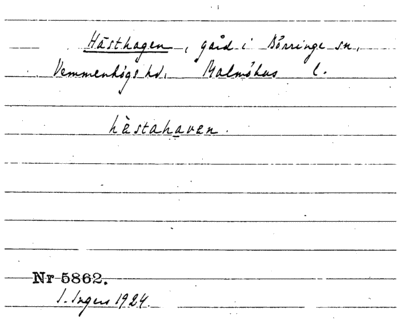 Hästhagen, gård i Börringe sn,
Vemmenhögs hd. Malmöhus l.
hèstahaven.
Nr 5862.
I. Ingers 1924